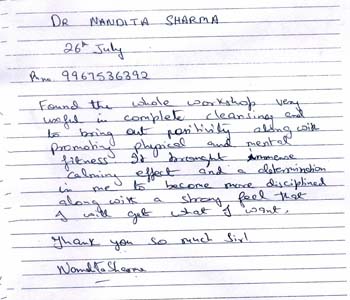 DR NANDITA SHARMA
26th July
Ph no. 9967536392
Found the whole workshop very
useful in complete cleansing and
to bring out positivity along with
promoting physical and mental
fitness. It brought immense
calming effect and a determination
in me to become more disciplined
along with a strong feel that
I will get what I want.
Thank you so much Sir!
Nandita Sharma